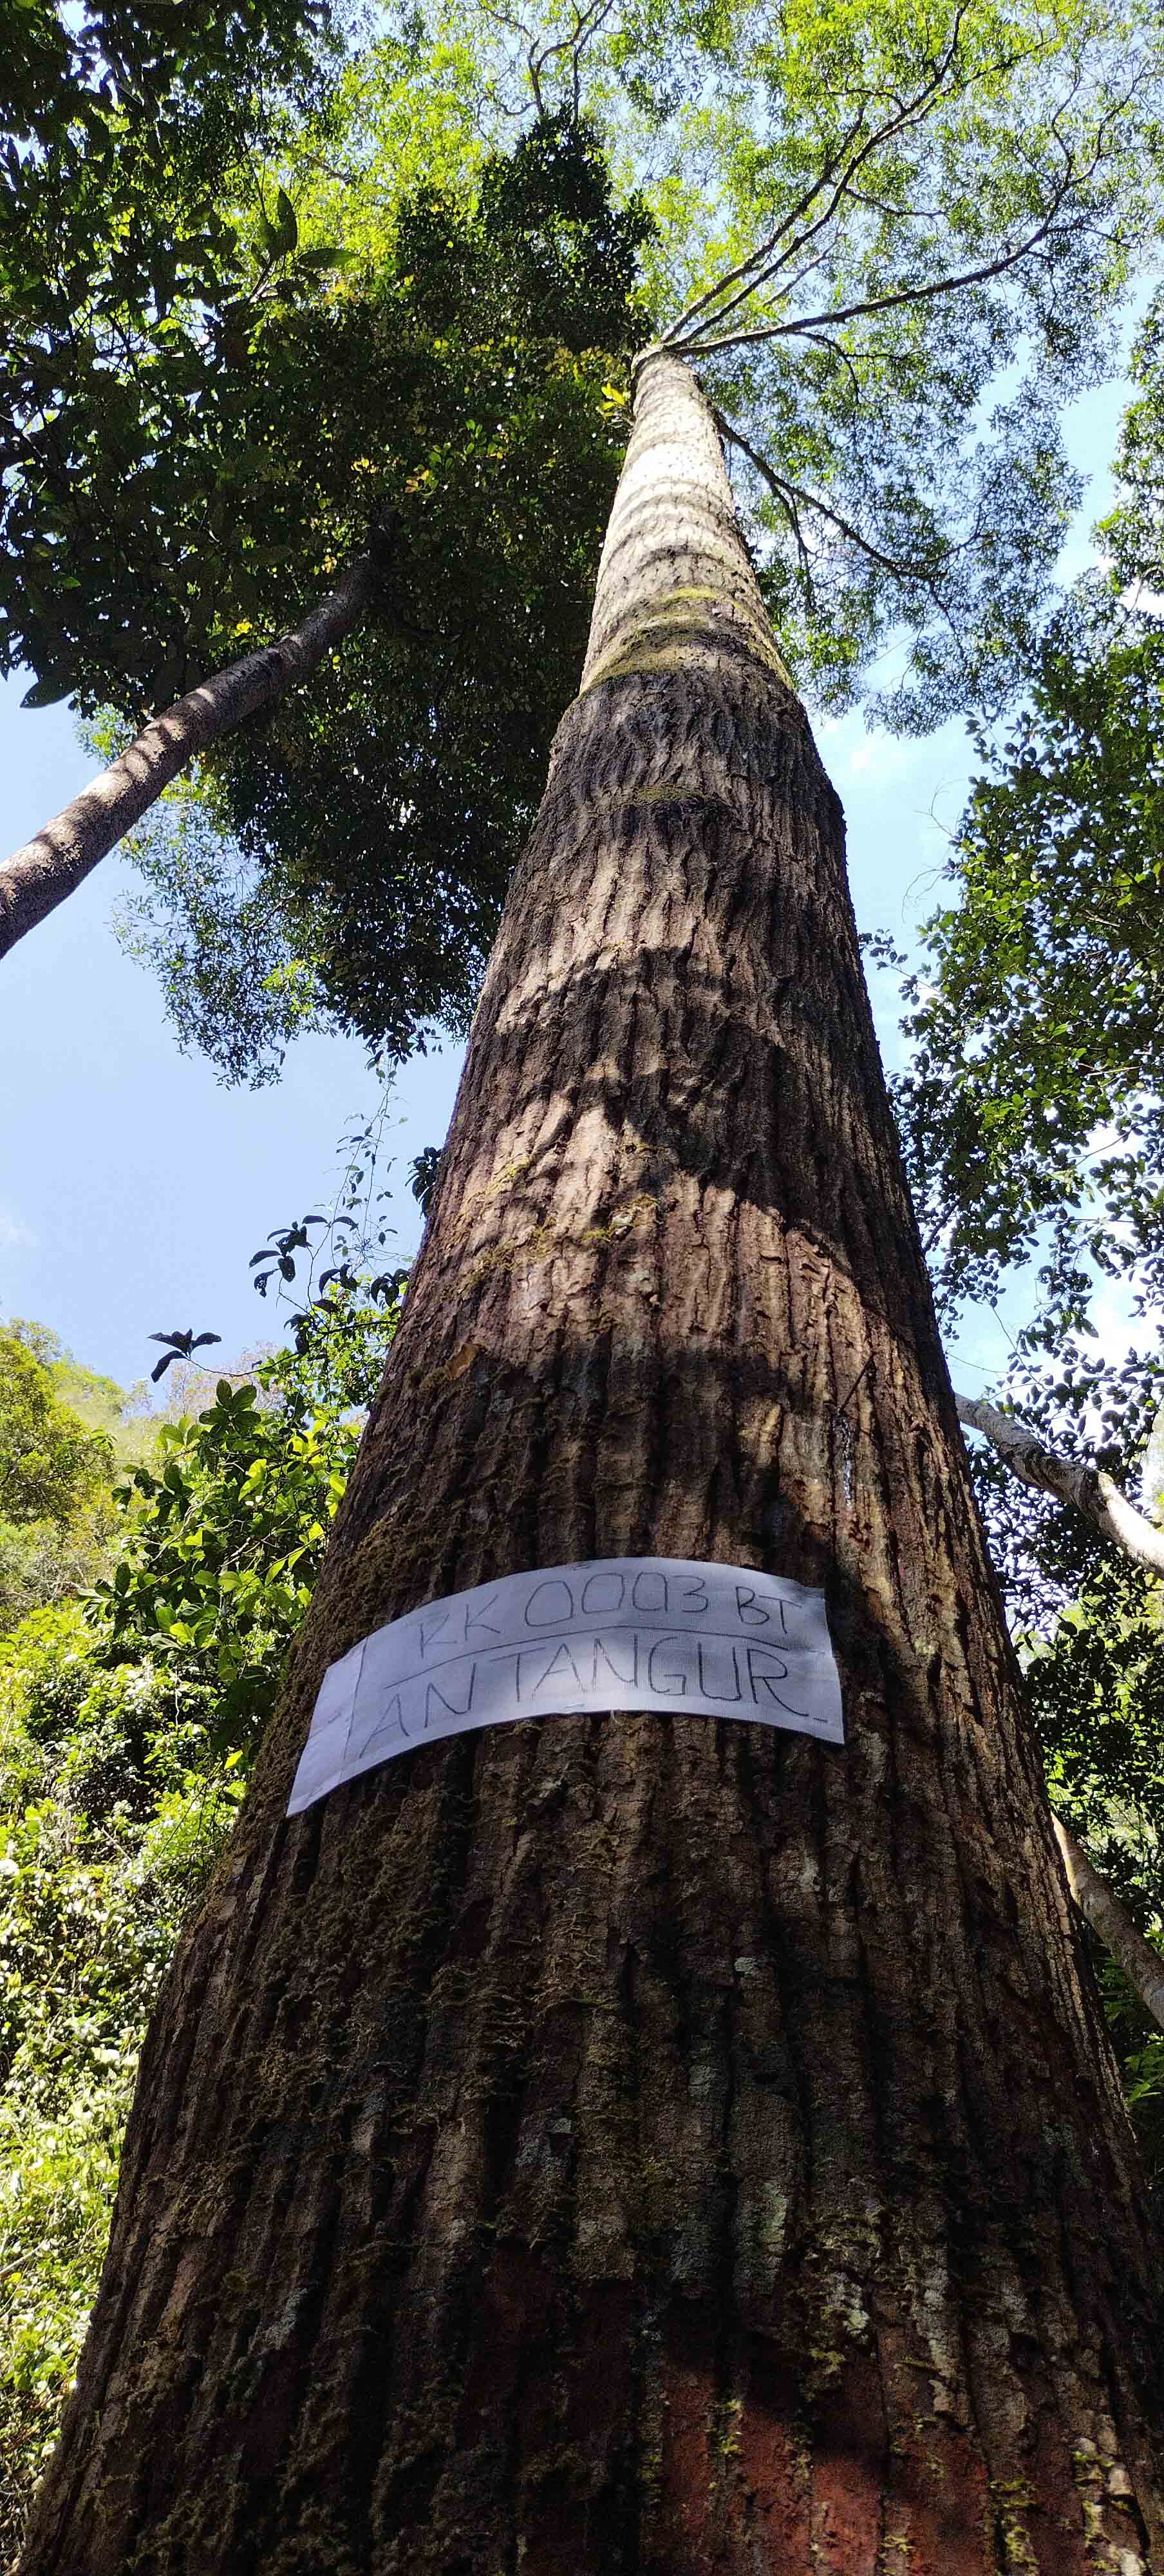 RK 0003 BT
ANTANGUR